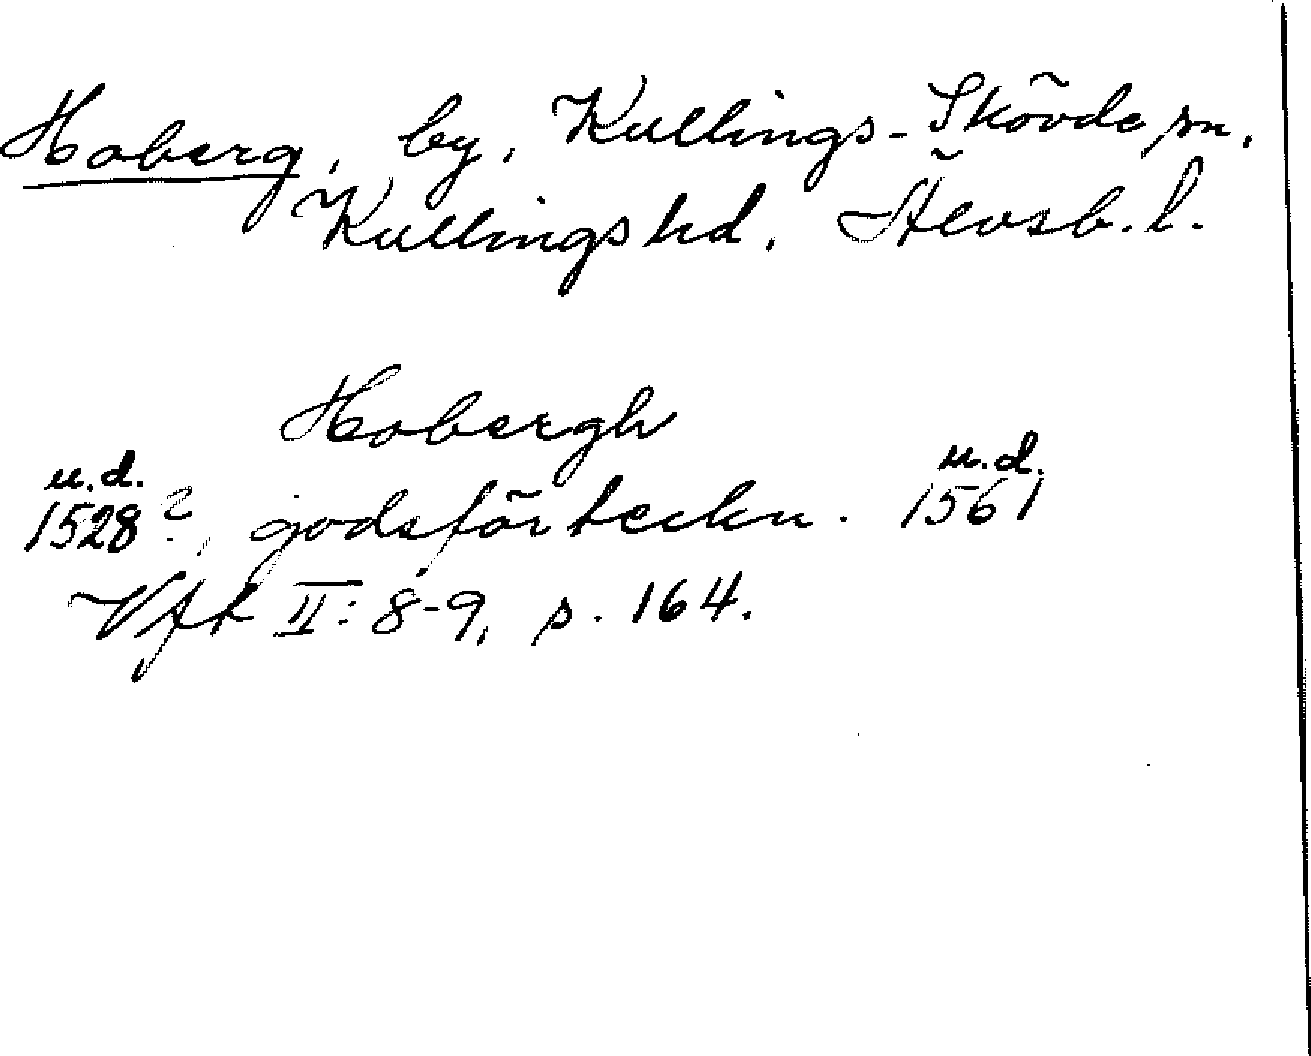 Hoberg, by, Kullings-Skövde sn.
Kullings hd, Älvsb. l.
Hobergh
u.d. u.d.
1528?, godsförteckn. 1561
Vft II: 8-9, s. 164.